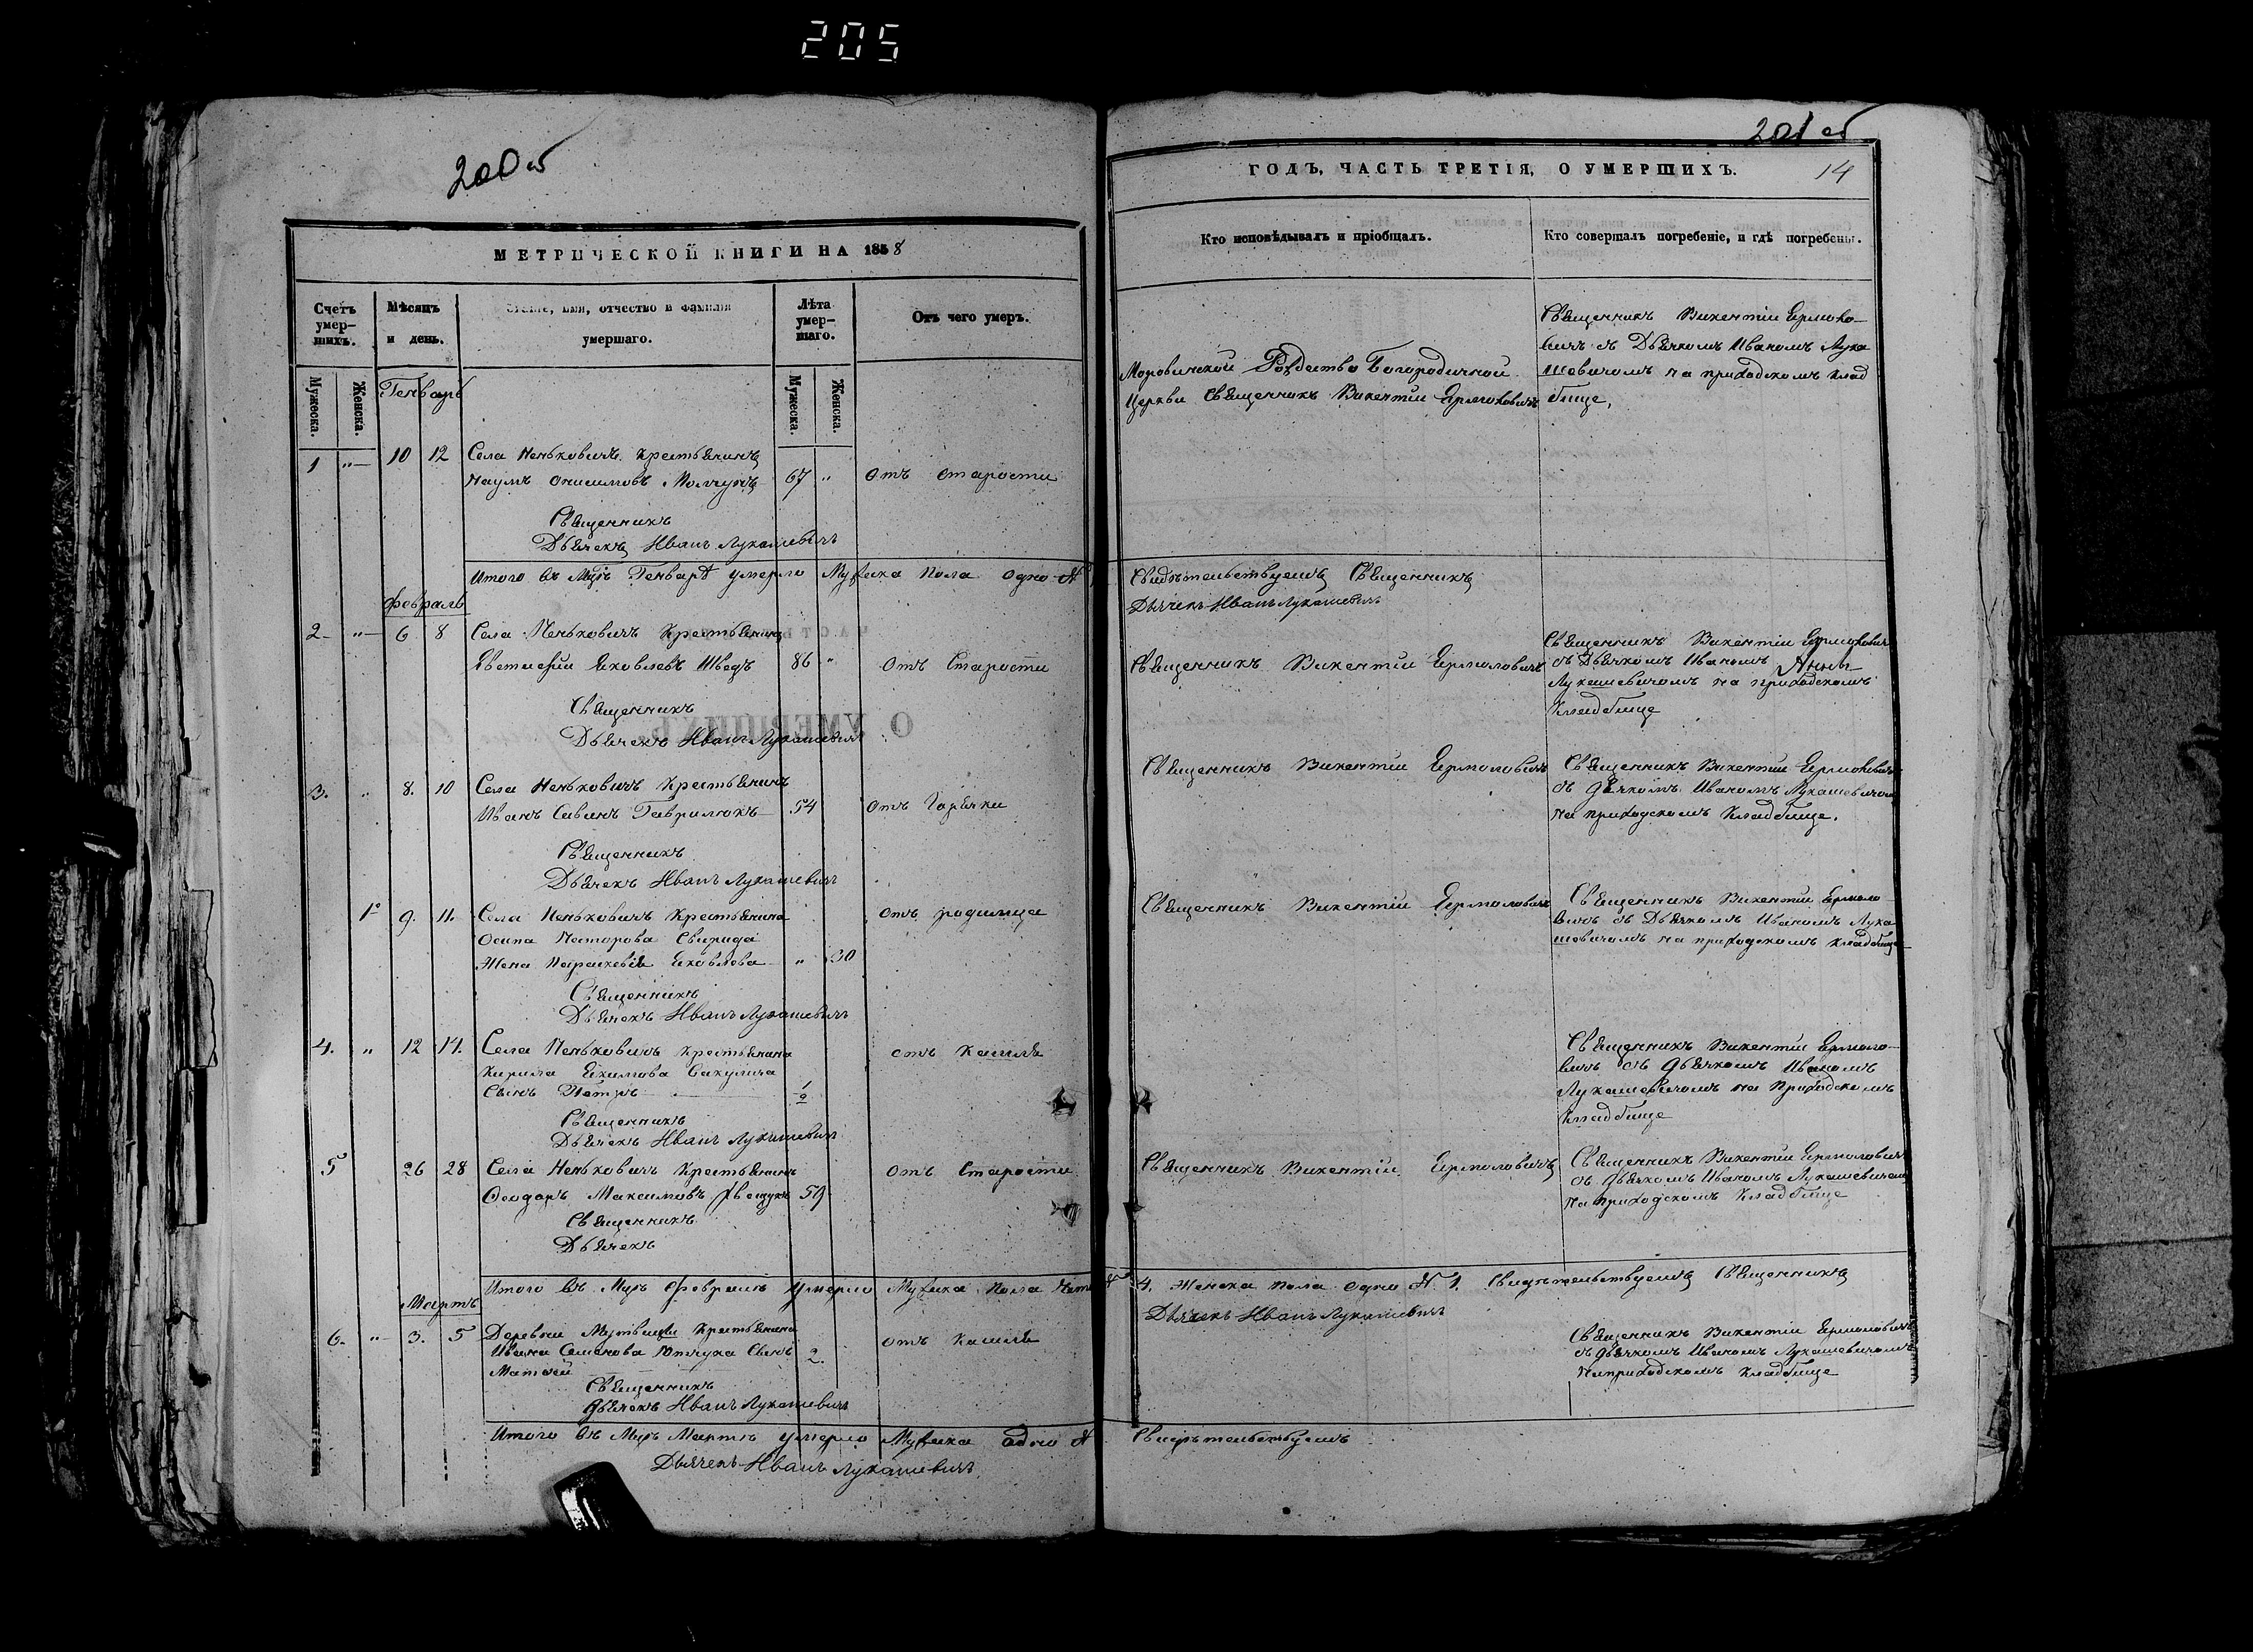 205
200об
201об
МЕТРИЧЕСКОЙ КНИГИ НА 1858
ГОДЪ, ЧАСТЬ ТРЕТІЯ, О УМЕРШИХЪ.
14
Счетъ умер-
шихъ.
Мѣсяцъ
и день.
Званіе, имя, отчество и фамилія
умершаго.
Лѣта
умер-
шаго.
Отъ чего умеръ.
Мужеска.
Женска.
Мужеска.
Женска.
Генварь
1 „ 10 12 Села Пеньковичъ Крестьянинъ
Наумъ Онисимовъ Молчунъ 67 „ отъ старости
Священникъ
Дьячекъ Иванъ Лукашевичъ
Итого въ Мцѣ Генварѣ умерло Мужеска пола одно №
Февраль
2 „ 6 8 Села Пеньковичъ Крестьянинъ
Евстафій Яковлевъ Шведъ 86 „ отъ Старости
Священникъ
Дьячекъ Иванъ Лукашевичъ
3. „ 8. 10 Села Пеньковичъ Крестьянинъ
Иванъ Савинъ Гаврилюкъ 54 отъ Горячки
Священникъ
Дьячекъ Иванъ Лукашевичъ
1 9. 11. Села Пеньковичъ Крестьянина отъ родимца
Осипа Несторова Свирида
Жена Параскевія Яковлева „ 30
Священникъ
Дьячекъ Иванъ Лукашевичъ
4. „ 12 14. Села Пеньковичъ Крестьянина отъ кашля
Кирила Екимова Сакулича
Сынъ Петръ 1/2
Священникъ
Дьячекъ Иванъ Лукашевичъ
5 26 28 Села Пеньковичъ Крестьянинъ отъ Старости
Феодоръ Максимовъ 59
Священникъ
Дьячекъ
Итого въ Мцѣ Февралѣ умерло Мужеска Пола
Мартъ
6. „ 3. 5 Деревни Крестьянина отъ кашля
Ивана Семенова Сынъ 2.
Матѳей
Священникъ
Дьячекъ Иванъ Лукашевичъ
Итого въ Мцѣ Мартѣ умерло Мужеска одно №
Дьячекъ Иванъ Лукашевичъ
Кто исповѣдывалъ и пріобщалъ.
Кто совершалъ погребеніе, и гдѣ погребены.
Моровинской Рождество Богородичной
Церкви Священникъ Викентій Ермоловичъ
Священникъ Викентій Ермоло-
вичъ съ Дьячкомъ Иваномъ Лука
шевичомъ на приходскомъ клад
бище,
Свидѣтельствуемъ Священникъ
Дьячекъ Иванъ Лукашевичъ
Священникъ Викентій Ермоловичъ
Священникъ Викентій Ермоловичъ
съ Дьячкомъ Иваномъ
Лукашевичомъ на приходскомъ
Кладбище
Священникъ Викентій Ермоловичъ
Священникъ Викентій Ермоловичъ
съ дьячкомъ Иваномъ Лукашевичомъ
на приходскомъ Кладбище.
Священникъ Викентій Ермоловичъ
Священникъ Викентій Ермоло
вичъ съ Дьячкомъ Иваномъ Лука
шевичомъ на приходскомъ кладбище
Священникъ Викентій Ермоло-
вичъ съ дьячкомъ Иваномъ
Лукашевичомъ на Приходскомъ
Кладбище
Священникъ Викентій Ермоловичъ
Священникъ Викентій Ермоловичъ
съ дьячкомъ Иваномъ Лукашевичомъ
на приходскомъ Кладбище
4. Женска пола одно №. 1. Свидѣтельствуемъ Священникъ
Дьячекъ Иванъ Лукашевичъ
Священникъ Викентій Ермоловичъ
съ дьячкомъ Иваномъ Лукашевичомъ
на приходскомъ кладбище
Свидѣтельствуемъ